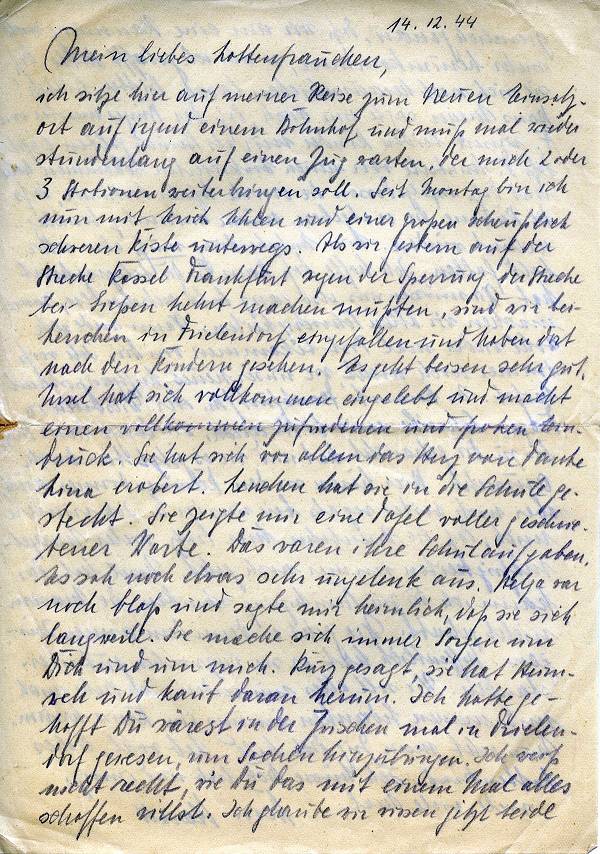 14.12.44
Mein liebes Lottenfrauchen,
ich sitze hier auf meiner Reise zum neuen Einsatz-
ort auf irgend einem Bahnhof und muß mal wieder
stundenlang auf einen Zug warten, der mich 2 oder
3 Stationen weiterbringen soll. Seit Montag bin ich
nun mit Erich und einer großen scheußlich
schweren Kiste unterwegs. Als wir gestern auf der
Strecke Kassel Frankfurt wegen der Sperrung der Strecke
bei Gießen kehrt machen mußten, sind wir bei
in eingefallen und haben dort
nach den Kindern gesehen. Es geht beiden sehr gut.
hat sich vollkommen eingelebt und macht
einen vollkommen zufriedenen und frohen Ein-
druck. Sie hat sich vor allem das Herz von Tante
Lina erobert. Lenchen hat sie in die Schule ge-
steckt. Sie zeigte mir eine Tafel voller geschrie-
bener Worte. Das waren ihre Schulaufgaben.
Es sah noch etwas sehr ungelenk aus. Helja war
noch blaß und sagte mir heimlich, daß sie sich
langweile. Sie mache sich immer Sorgen um
Dich und um mich. Kurz gesagt, sie hat Heim-
weh und kaut daran herum. Ich hatte ge-
hofft Du wärest in der Zwischen mal in
dorf gewesen, um Sachen hinzubringen. Ich weiß
nicht recht, wie Du das mit einem Mal alles
schaffen willst. Ich glaube wir wissen jetzt beide